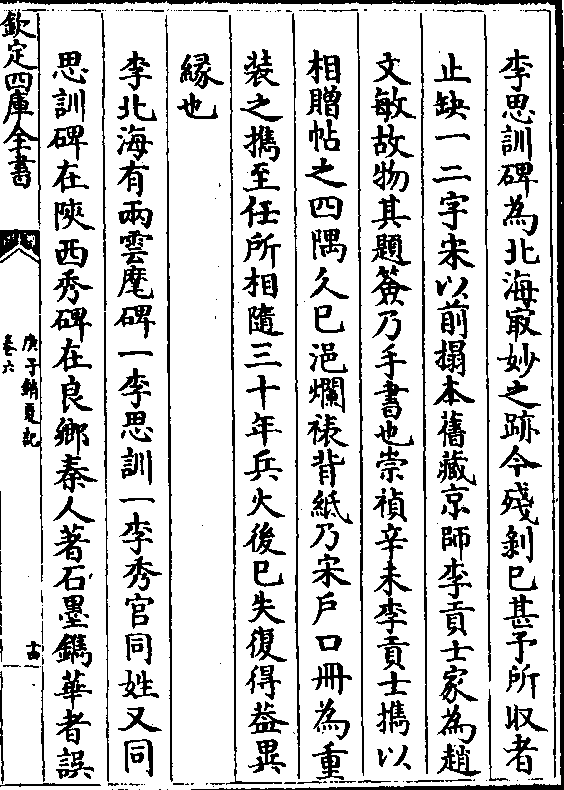 李思訓碑為北海㝡妙之跡今殘剝已甚予所收者
止缺一二字宋以前搨本舊藏京師李貢士家為趙
文敏故物其題簽乃手書也崇禎辛未李貢士携以
相贈帖之四隅久已浥爛裱背紙乃宋戶口冊為重
装之携至任所相隨三十年兵火後已失復得益異
縁也
李北海有兩雲麾碑一李思訓一李秀官同姓又同
思訓碑在陜西秀碑在良鄉秦人著石墨鐫華者誤
欽定四庫全書
庚子銷夏記
卷六
十四